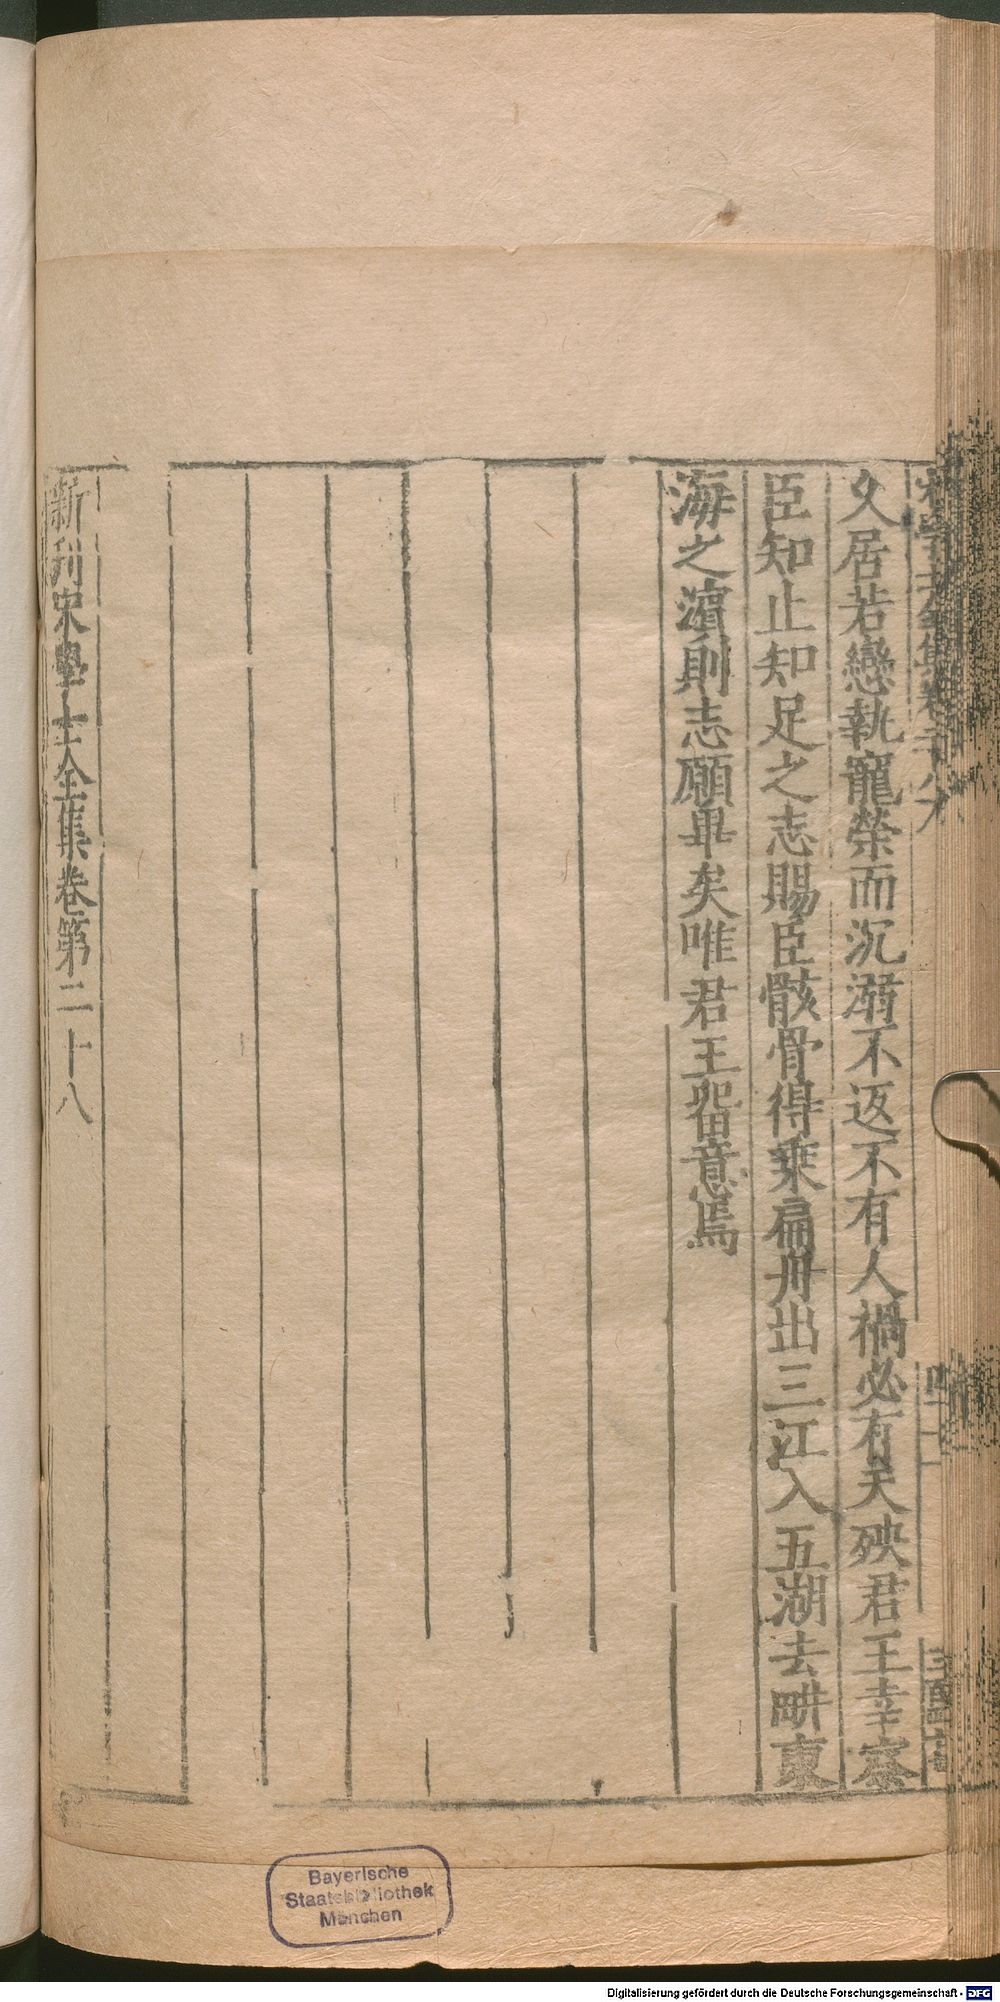 久居若戀執寵榮而沉溺不返不有人禍必有天殃君王幸察
臣知止知足之志賜臣骸骨得乘扁舟出三江入五湖去畊東
海之濵則志願畢矣唯君王畱意焉
新刋宋學士全集卷第二十八
Bayerische
Staatsbibliothek
München
Digitalisierung gefördert durch die Deutsche Forschungsgemeinschaft - DFG